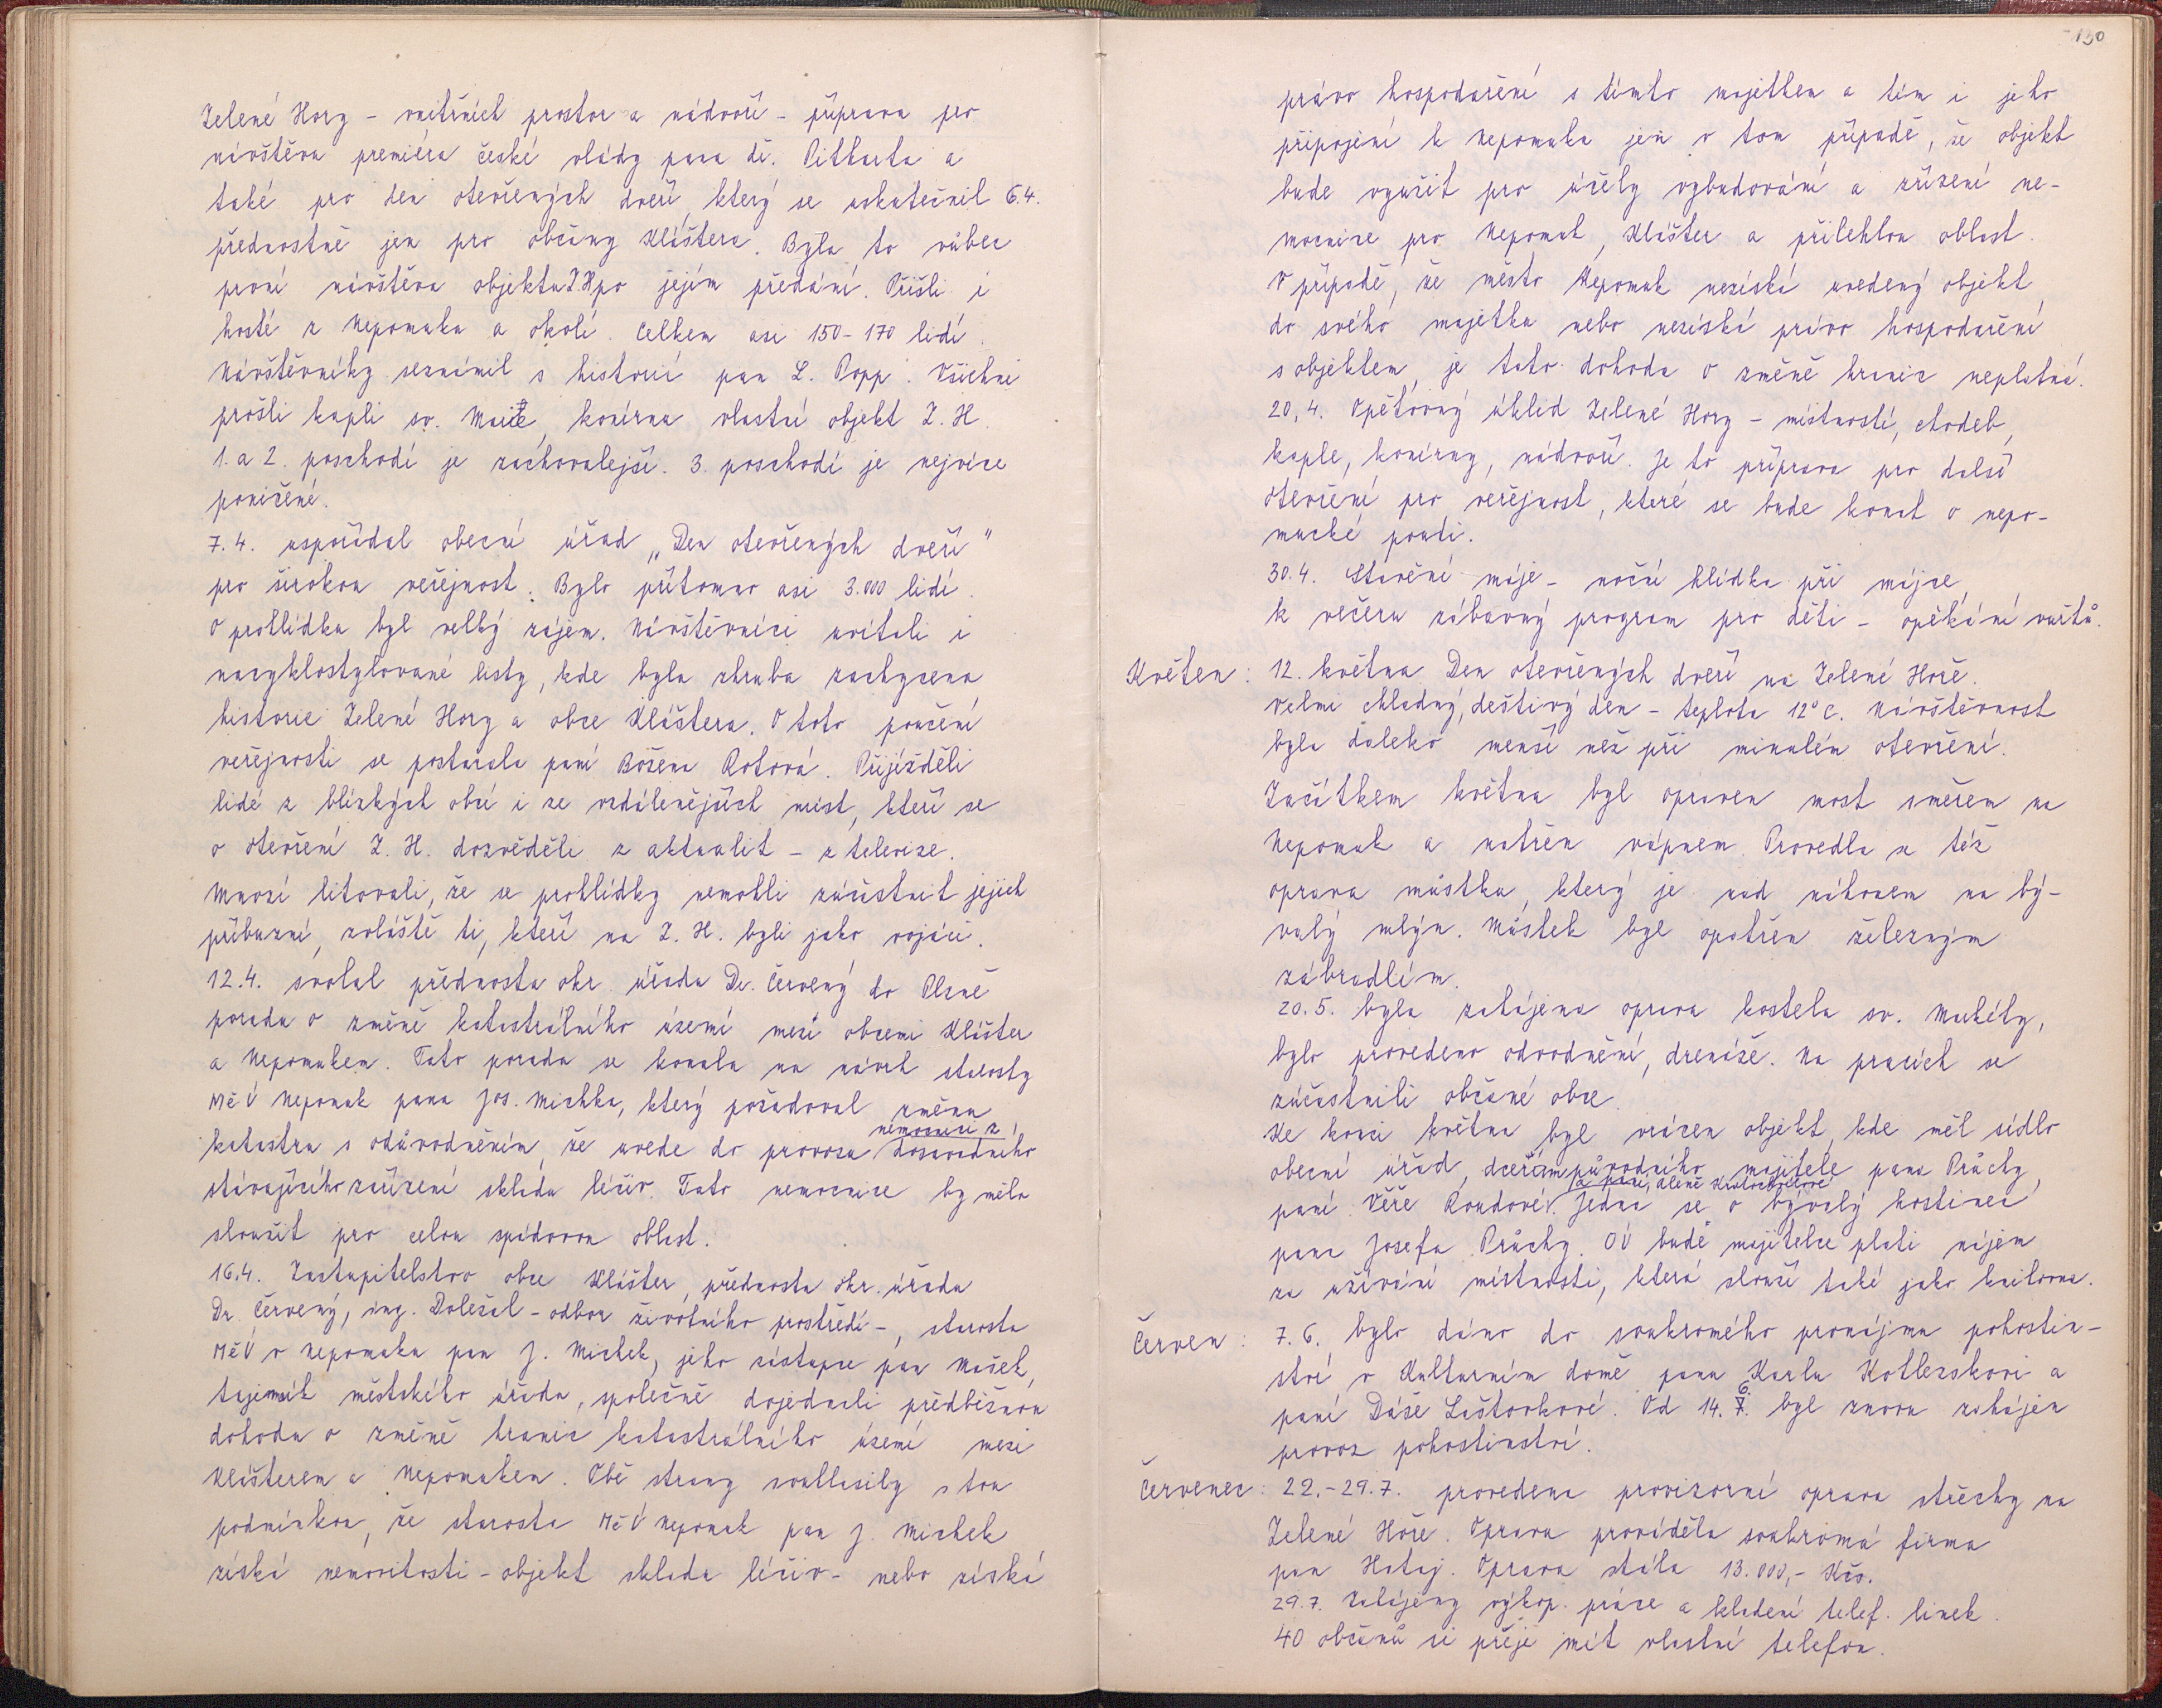 Zelené Hory - vnitřních prostor a nádvoří - příprava pro
návštěvu premiéra české vlády pana dr. Pitharta a
také pro den otevřených dveří, který se uskutečnil 6.4.
přednostně jen pro občany Kláštera. Byla to vůbec
první návštěva objektu Z.H. po jejím předání. Přišli i
hosté z Nepomuka a okolí. Celkem asi 150-170 lidí.
Návštěvníky seznámil s historií pan L. Popp. Všichni
prošli kapli sv. Máří, konírnu vlastní objekt Z. H.
1. a 2. poschodí je zachovalejší. 3. poschodí je nejvíce
poničené.
7.4. uspořádal obecní úřad „Den otevřených dveří"
pro širokou veřejnost. Bylo přítomno asi 3.000 lidí.
O prohlídku byl velký zájem. Návštěvníci uvítali i
nacyklostylované listy, kde byla zhruba zachycena
historie Zelené Hory a obce Kláštera. O toto poučení
veřejnosti se postarala paní Božena Rotová. Přijížděli
lidé z blízkých obcí i ze vzdálenějších míst, kteří se
o otevření Z. H. dozvěděli z aktualit - z televize.
Mnozí litovali, že se prohlídky nemohli zúčastnit jejich
příbuzní, zvláště ti, kteří na Z. H. byli jako vojáci.
12.4. svolal přednosta okr. úřadu Dr. Červený do Plzně
poradu o změně katastrálního území mezi obcemi Klášter
a Nepomukem. Tato porada se konala na návrh starosty
MěÚ Nepomuk pana Jos. Michka, který požadoval změnu
katastru s odůvodněním, že uvede do provozu nemocnici z dosavadního
stávajícího zařízení skladu léčiv. Tato nemocnice by měla
sloužit pro celou spádovou oblast.
16.4. Zastupitelstvo obce Klášter, přednosta okr. úřadu
Dr. Červený, ing. Doležal - odbor životního prostředí -, starosta
MěÚ v Nepomuku pan J. Michek, jeho zástupce pan Mašek,
tajemník městského úřadu, společně dojednali předběžnou
dohodu o změně hranic katastrálního území mezi
Klášterem a Nepomukem. Obě strany souhlasily s tou
podmínkou, že starosta MěÚ Nepomuk pan J. Michek
získá nemovitosti - objekt skladu léčiv - nebo získá
130
právo hospodaření s tímto majetkem a tím i jeho
připojení k Nepomuku jen v tom případě, že objekt
bude využit pro účely vybudování a zřízení ne-
mocnice pro Nepomuk, Klášter a přilehlou oblast.
V případě, že město Nepomuk nezíská uvedený objekt
do svého majetku nebo nezíská právo hospodaření
s objektem, je tato dohoda o změně hranic neplatná.
20.4. Opětovný úklid Zelené Hory - místností, chodeb,
kaple, konírny, nádvoří. Je to příprava pro další
otevření pro veřejnost, které se bude konat o nepo-
mucké pouti.
30.4. Stavění máje - noční hlídka při májce,
k večeru zábavný program pro děti - opékání vuřtů.
Květen: 12. května Den otevřených dveří na Zelené Hoře.
Velmi chladný, deštivý den - teplota 12°C. Návštěvnost
byla daleko menší než při minulém otevření.
Začátkem května byl opraven most směrem na
Nepomuk a natřen vápnem. Provedla se též
oprava můstku, který je nad náhonem na bý-
valý mlýn. Můstek byl opatřen železným
zábradlím.
20.5. byla zahájena oprava kostela sv. Markéty,
bylo provedeno odvodnění, drenáže. Na pracích se
zúčastnili občané obce.
Ke konci května byl vrácen objekt, kde měl sídlo
obecní úřad, dcerám původního majitele pana Průchy,
paní Věře Roudové a paní Aleně Kratochvílové. Jedná se o bývalý hostinec
pana Josefa Průchy. OÚ bude majitelce platit nájem
za užívání místnosti, která slouží také jako knihovna.
Červen: 7.6. bylo dáno do soukromého pronájmu pohostin-
ství v Kulturním domě panu Karlu Kotlerskovi a
paní Dáše Laštovkové. Od 14.6. byl znovu zahájen
provoz pohostinství.
Červenec: 22.-29.7. provedena provizorní oprava střechy na
Zelené Hoře. Opravu prováděla soukromá firma
pan Hataj. Oprava stála 13.000,- Kčs.
29.7. Zahájeny výkop. práce a kladení telef. linek.
40 občanů si přeje mít vlastní telefon.